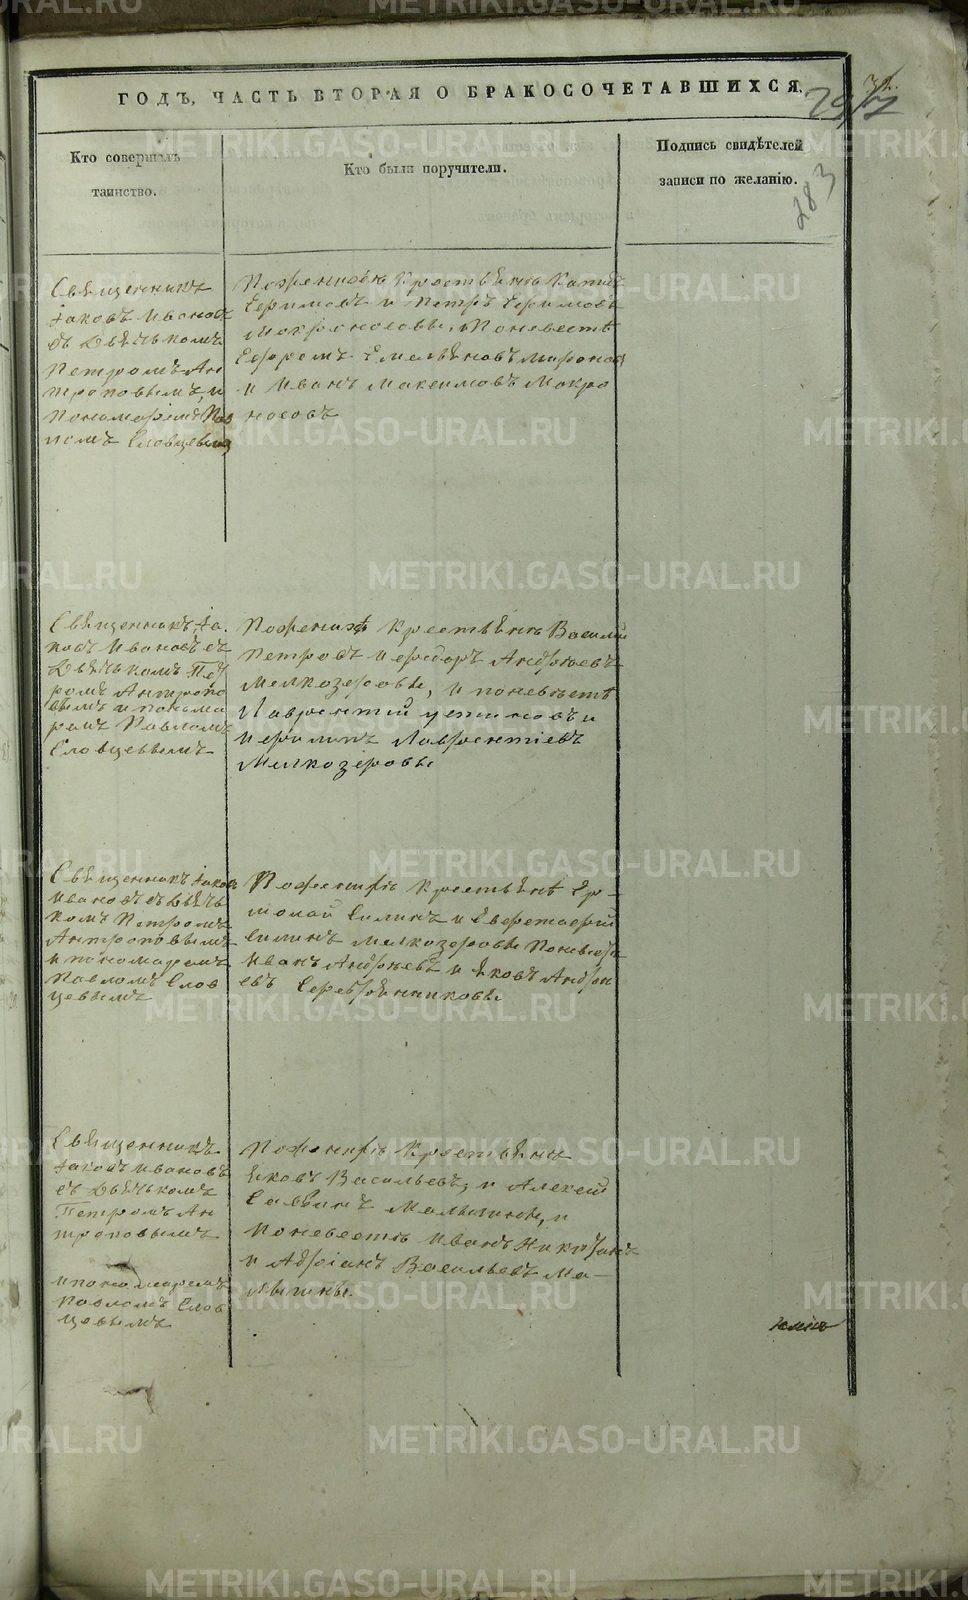 ГОДЪ, ЧАСТЬ ВТОРАЯ О БРАКОСОЧЕТАВШИХСЯ.
283
Кто совершалъ
таинство.
Кто были поручители.
Подпись свидѣтелей
записи по желанію.
Священникъ
Іаковъ Ивановъ
съ Дьячькомъ
Петромъ Ан
троповымъ, и
Пономаремъ Пав
ломъ Словцевымъ
Ефимовъ и Петръ Ефимовъ
Мокроносовы, Поневестѣ
Ефремъ Емельяновъ
и Иванъ Максимовъ Мокро
носовъ
Священникъ Іа
ковъ Ивановъ съ
Дьячькомъ Пет
ромъ Антропо
вымъ и понома
ремъ Павломъ
Словцевымъ
Поженихѣ Крестьяне Василий
Петровъ и Федоръ Андреевъ
Мелкозеровы, и поневестѣ
Лаврентий и
Филипъ Лаврентиевъ
Мелкозеровы
Священникъ Іаковъ
Ивановъ съ Дьячь
комъ Петромъ
Антроповымъ
и пономаремъ
Павломъ Слов
цевымъ
Поженихѣ Крестьяне Ер-
молай Силинъ и
Силинъ Мелкозеровы Поневестѣ
Иванъ Андреевъ и Яковъ Андре
евъ Серебренниковы
Священникъ
Іаковъ Ивановъ
съ Дьячькомъ
Петромъ Ан
троповымъ
и пономаремъ
Павломъ Слов
цевымъ
Поженихѣ Крестьяне
Яковъ Васильевъ, и Алексей
Саввинъ Малыгины, и
Поневестѣ Иванъ
и Адрианъ Васильевъ Ма-
лыгины.